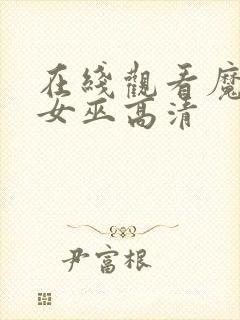 在綫觀看魔
女巫高清
尹富根